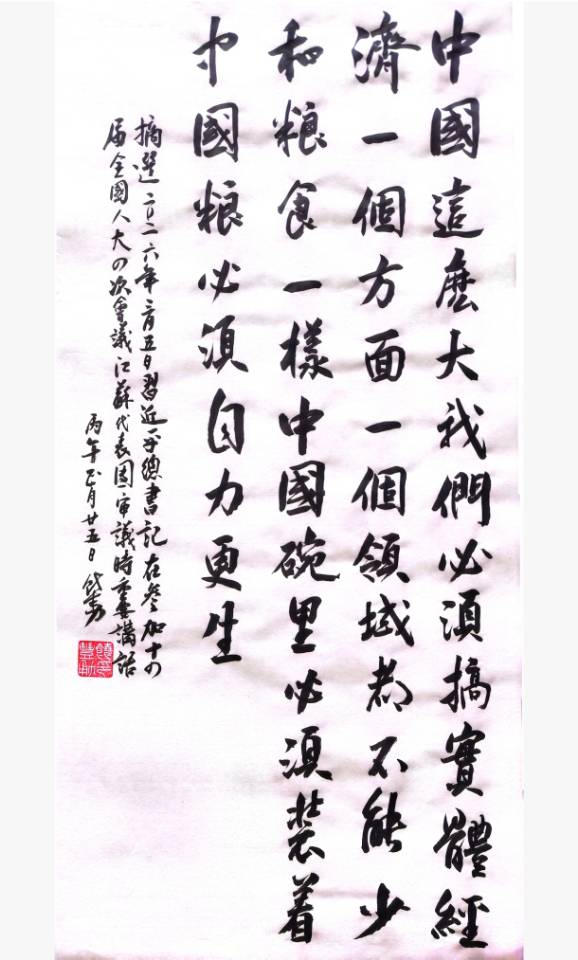 中國這麽大我們必須搞實體經
濟一個方面一個領域都不能少
和粮食一樣中國碗里必須装着
中國粮必須自力更生
摘選二〇二六年三月五日習近平總書記在參加十四
届全國人大四次會議江蘇代表團審議時重要講話
丙午正月廿五日